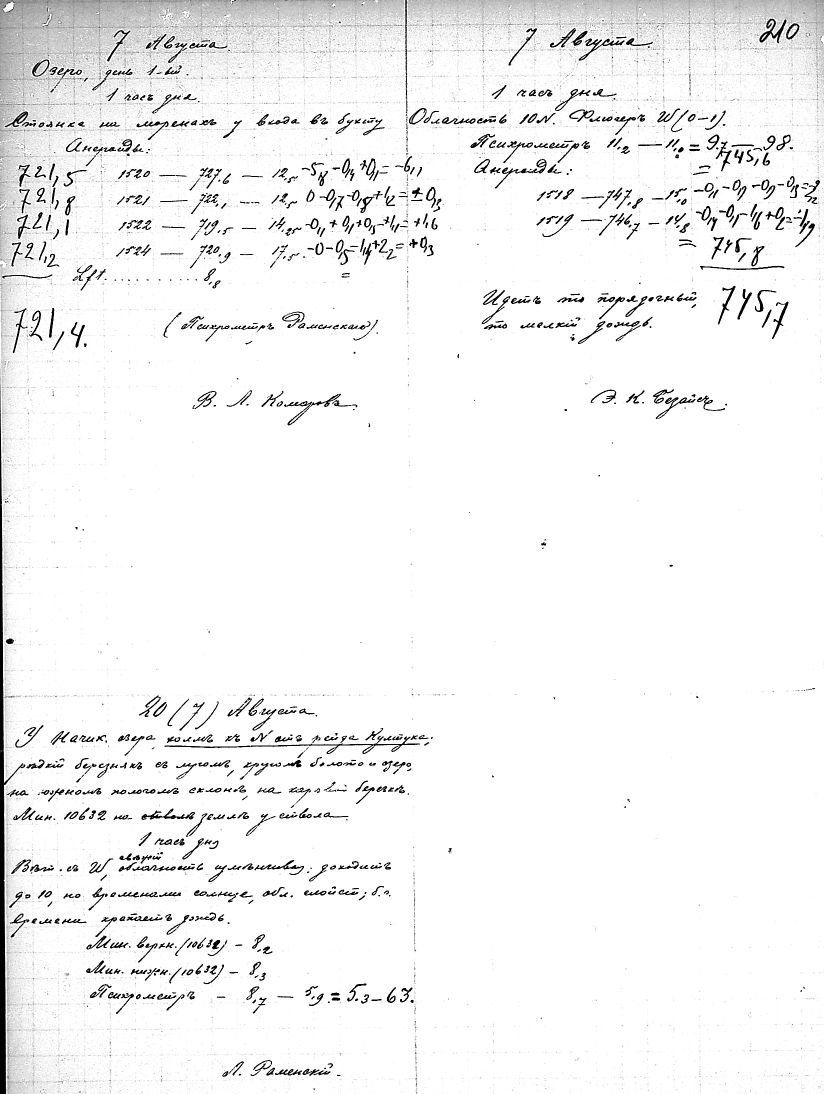 210
7 Августа.
Озеро, день 1-ый.
1 часъ дня.
Стоянка на моренахъ у входа въ бухту
Анероиды:
721,5 1520 — 727.6 — 12.5 -5,8 -0,4 +0,1 = -6,1
721,8 1521 — 722.1 — 12.5 0 -0,7 -0,8 +1,2 = ± 0,3
721,1 1522 — 719.5 — 14.25 -0,1 + 0,1 +0,5 +1,1 = +1,6
721,2 1524 — 720.9 — 17.5 -0 -0,5 -1,4 +2,2 = +0,3
Lft. . . . . . . . . . . 8,8 =
721,4. (Психрометръ Раменскаго).
В. Л. Комаровъ.
7 Августа.
1 часъ дня.
Облачность 10 N. Флюгеръ W (0-1).
Психрометръ 11,2 — 11,0 = 9.7 — 98.
= 745,6
Анероиды:
1518 — 747.8 — 15.0
1519 — 746.7 — 14.8
= 745,8
Идетъ то порядочный, 745,7
то мелкій дождь.
Э. К. Безайсъ.
20 (7) Августа.
У Начик. озера, холмъ къ N отъ рейда Култука;
рѣдкій березнякъ съ лугомъ, кругомъ болото и озеро,
на южномъ пологомъ склонѣ, на березкѣ.
Мин. 10632 на землѣ у ствола
1 часъ дня
Вѣт. съ W, облачность измѣнчивая: доходитъ
до 10, но временами солнце, обл. слойст; б.ч.
времени крапаетъ дождь.
Мин. верхн. (10632) — 8,2
Мин. нижн. (10632) — 8,3
Психрометръ — 8,7 — 5,9. = 5.3 — 63.
Л. Раменскій.